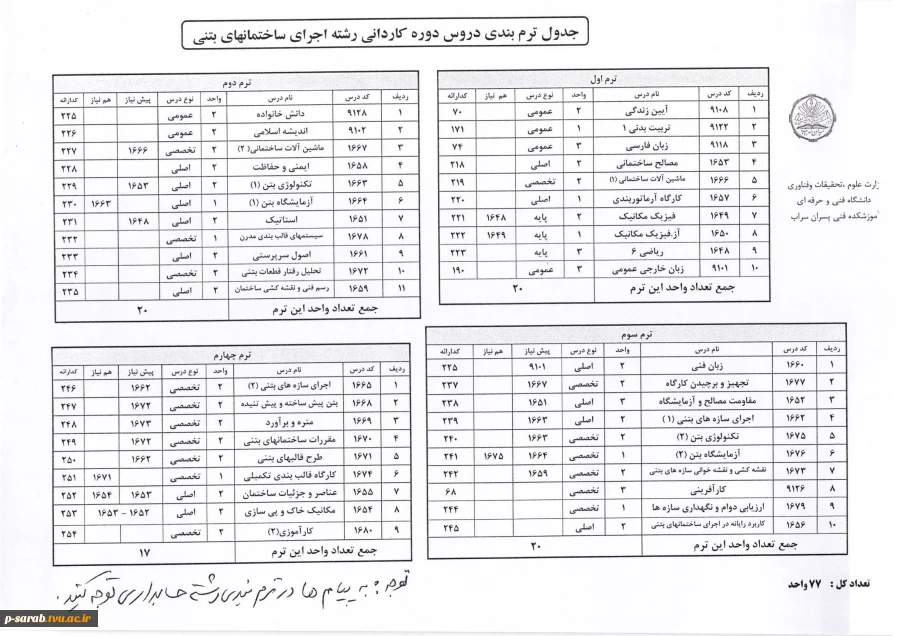 جدول ترم بندی دروس دوره کاردانی رشته اجرای ساختمانهای بتنی
وزارت علوم، تحقیقات وفناوری
دانشگاه فنی و حرفه ای
آموزشکده فنی پسران سراب
ترم اول
ردیف کد درس نام درس واحد نوع درس پیش نیاز هم نیاز کدارائه
۱ ۹۱۰۸ آیین زندگی ۲ عمومی ۷۰
۲ ۹۱۲۲ تربیت بدنی ۱ ۱ عمومی ۱۷۱
۳ ۹۱۱۸ زبان فارسی ۳ عمومی ۷۴
۴ ۱۶۵۳ مصالح ساختمانی ۲ اصلی ۲۱۸
۵ ۱۶۶۶ ماشین آلات ساختمانی (۱) ۲ تخصصی ۲۱۹
۶ ۱۶۵۷ کارگاه آرماتوربندی ۱ اصلی ۲۲۰
۷ ۱۶۴۹ فیزیک مکانیک ۲ پایه ۱۶۴۸ ۲۲۱
۸ ۱۶۵۰ آز.فیزیک مکانیک ۱ پایه ۱۶۴۹ ۲۲۲
۹ ۱۶۴۸ ریاضی ۶ ۳ پایه ۲۲۳
۱۰ ۹۱۰۱ زبان خارجی عمومی ۳ عمومی ۱۹۰
جمع تعداد واحد این ترم ۲۰
ترم دوم
ردیف کد درس نام درس واحد نوع درس پیش نیاز هم نیاز کدارائه
۱ ۹۱۲۸ دانش خانواده ۲ عمومی ۲۲۵
۲ ۹۱۰۲ اندیشه اسلامی ۲ عمومی ۲۲۶
۳ ۱۶۶۷ ماشین آلات ساختمانی( ۲) ۲ تخصصی ۱۶۶۶ ۲۲۷
۴ ۱۶۵۸ ایمنی و حفاظت ۲ اصلی ۲۲۸
۵ ۱۶۶۳ تکنولوژی بتن (۱) ۲ اصلی ۱۶۵۳ ۲۲۹
۶ ۱۶۶۴ آزمایشگاه بتن (۱) ۱ اصلی ۱۶۶۳ ۲۳۰
۷ ۱۶۵۱ استاتیک ۲ اصلی ۱۶۴۸ ۲۳۱
۸ ۱۶۷۸ سیستمهای قالب بندی مدرن ۱ تخصصی ۲۳۲
۹ ۱۶۶۱ اصول سرپرستی ۲ اصلی ۲۳۳
۱۰ ۱۶۷۲ تحلیل رفتار قطعات بتنی ۲ تخصصی ۲۳۴
۱۱ ۱۶۵۹ رسم فنی و نقشه کشی ساختمان ۲ اصلی ۲۳۵
جمع تعداد واحد این ترم ۲۰
ترم سوم
ردیف کد درس نام درس واحد نوع درس پیش نیاز هم نیاز کدارائه
۱ ۱۶۶۰ زبان فنی ۲ اصلی ۹۱۰۱ ۲۲۵
۲ ۱۶۷۷ تجهیز و برچیدن کارگاه ۲ تخصصی ۱۶۶۷ ۲۳۷
۳ ۱۶۵۲ مقاومت مصالح و آزمایشگاه ۳ اصلی ۱۶۵۱ ۲۳۸
۴ ۱۶۶۲ اجرای سازه های بتنی (۱ ) ۲ اصلی ۱۶۶۳ ۲۳۹
۵ ۱۶۷۵ تکنولوژی بتن (۲) ۲ تخصصی ۱۶۶۳ ۲۴۰
۶ ۱۶۷۶ آزمایشگاه بتن (۲) ۱ تخصصی ۱۶۶۴ ۱۶۷۵ ۲۴۱
۷ ۱۶۷۳ نقشه کشی و نقشه خوانی سازه های بتنی ۲ تخصصی ۱۶۵۹ ۲۴۲
۸ ۹۱۲۶ کارآفرینی ۳ تخصصی ۶۸
۹ ۱۶۷۹ ارزیابی دوام و نگهداری سازه ها ۱ تخصصی ۲۴۴
۱۰ ۱۶۵۶ کاربرد رایانه در اجرای ساختمانهای بتنی ۲ اصلی ۲۴۵
جمع تعداد واحد این ترم ۲۰
ترم چهارم
ردیف کد درس نام درس واحد نوع درس پیش نیاز هم نیاز کدارائه
۱ ۱۶۶۵ اجرای سازه های بتنی (۲) ۲ تخصصی ۱۶۶۲ ۲۴۶
۲ ۱۶۶۸ بتن پیش ساخته و پیش تنیده ۲ تخصصی ۱۶۷۲ ۲۴۷
۳ ۱۶۶۹ متره و برآورد ۲ تخصصی ۱۶۷۳ ۲۴۸
۴ ۱۶۷۰ مقررات ساختمانهای بتنی ۲ تخصصی ۱۶۷۲ ۲۴۹
۵ ۱۶۷۱ طرح قالبهای بتنی ۲ تخصصی ۱۶۶۲ ۲۵۰
۶ ۱۶۷۴ کارگاه قالب بندی تکمیلی ۱ تخصصی ۱۶۷۱ ۲۵۱
۷ ۱۶۵۵ عناصر و جزئیات ساختمان ۲ اصلی ۱۶۵۳ ۱۶۵۴ ۲۵۲
۸ ۱۶۵۴ مکانیک خاک و پی سازی ۲ اصلی ۱۶۵۲ - ۱۶۵۳ ۲۵۳
۹ ۱۶۸۰ کارآموزی(۲) ۲ تخصصی ۲۵۴
جمع تعداد واحد این ترم ۱۷
تعداد کل : ۷۷ واحد
توجه : به پیام ها در ترم بندی رشته حسابداری توجه کنید .
p-sarab.tvu.ac.ir